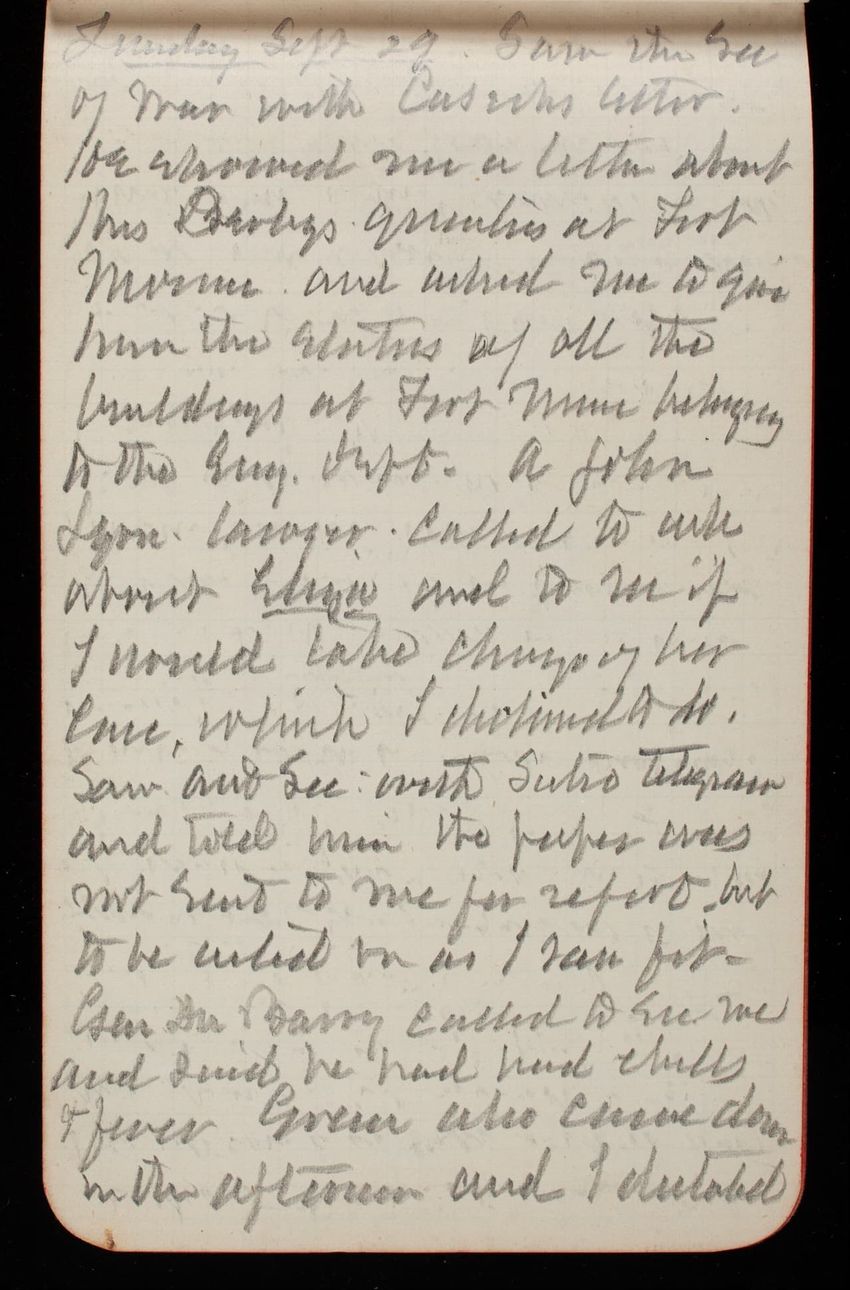 Sunday Sept 29. Saw the Sec
of War with Caseys letter.
He showed me a letter about
Mrs quarters at Fort
Monroe and asked me to give
him the status of all the
buildings at Fort Monroe belonging
to the Eng. Dept. A John
Lyon. lawyer. called to ask
about Eliza and to see if
I would take charge of her
case, which I declined to do.
Saw and Sec: with Sutro telegram
and told him the paper was
not sent to me for report, but
to be acted on as I saw fit-
Gen Barry called to see me
and said he had had chills
& fever. Green also came down
in the afternoon and I dictated